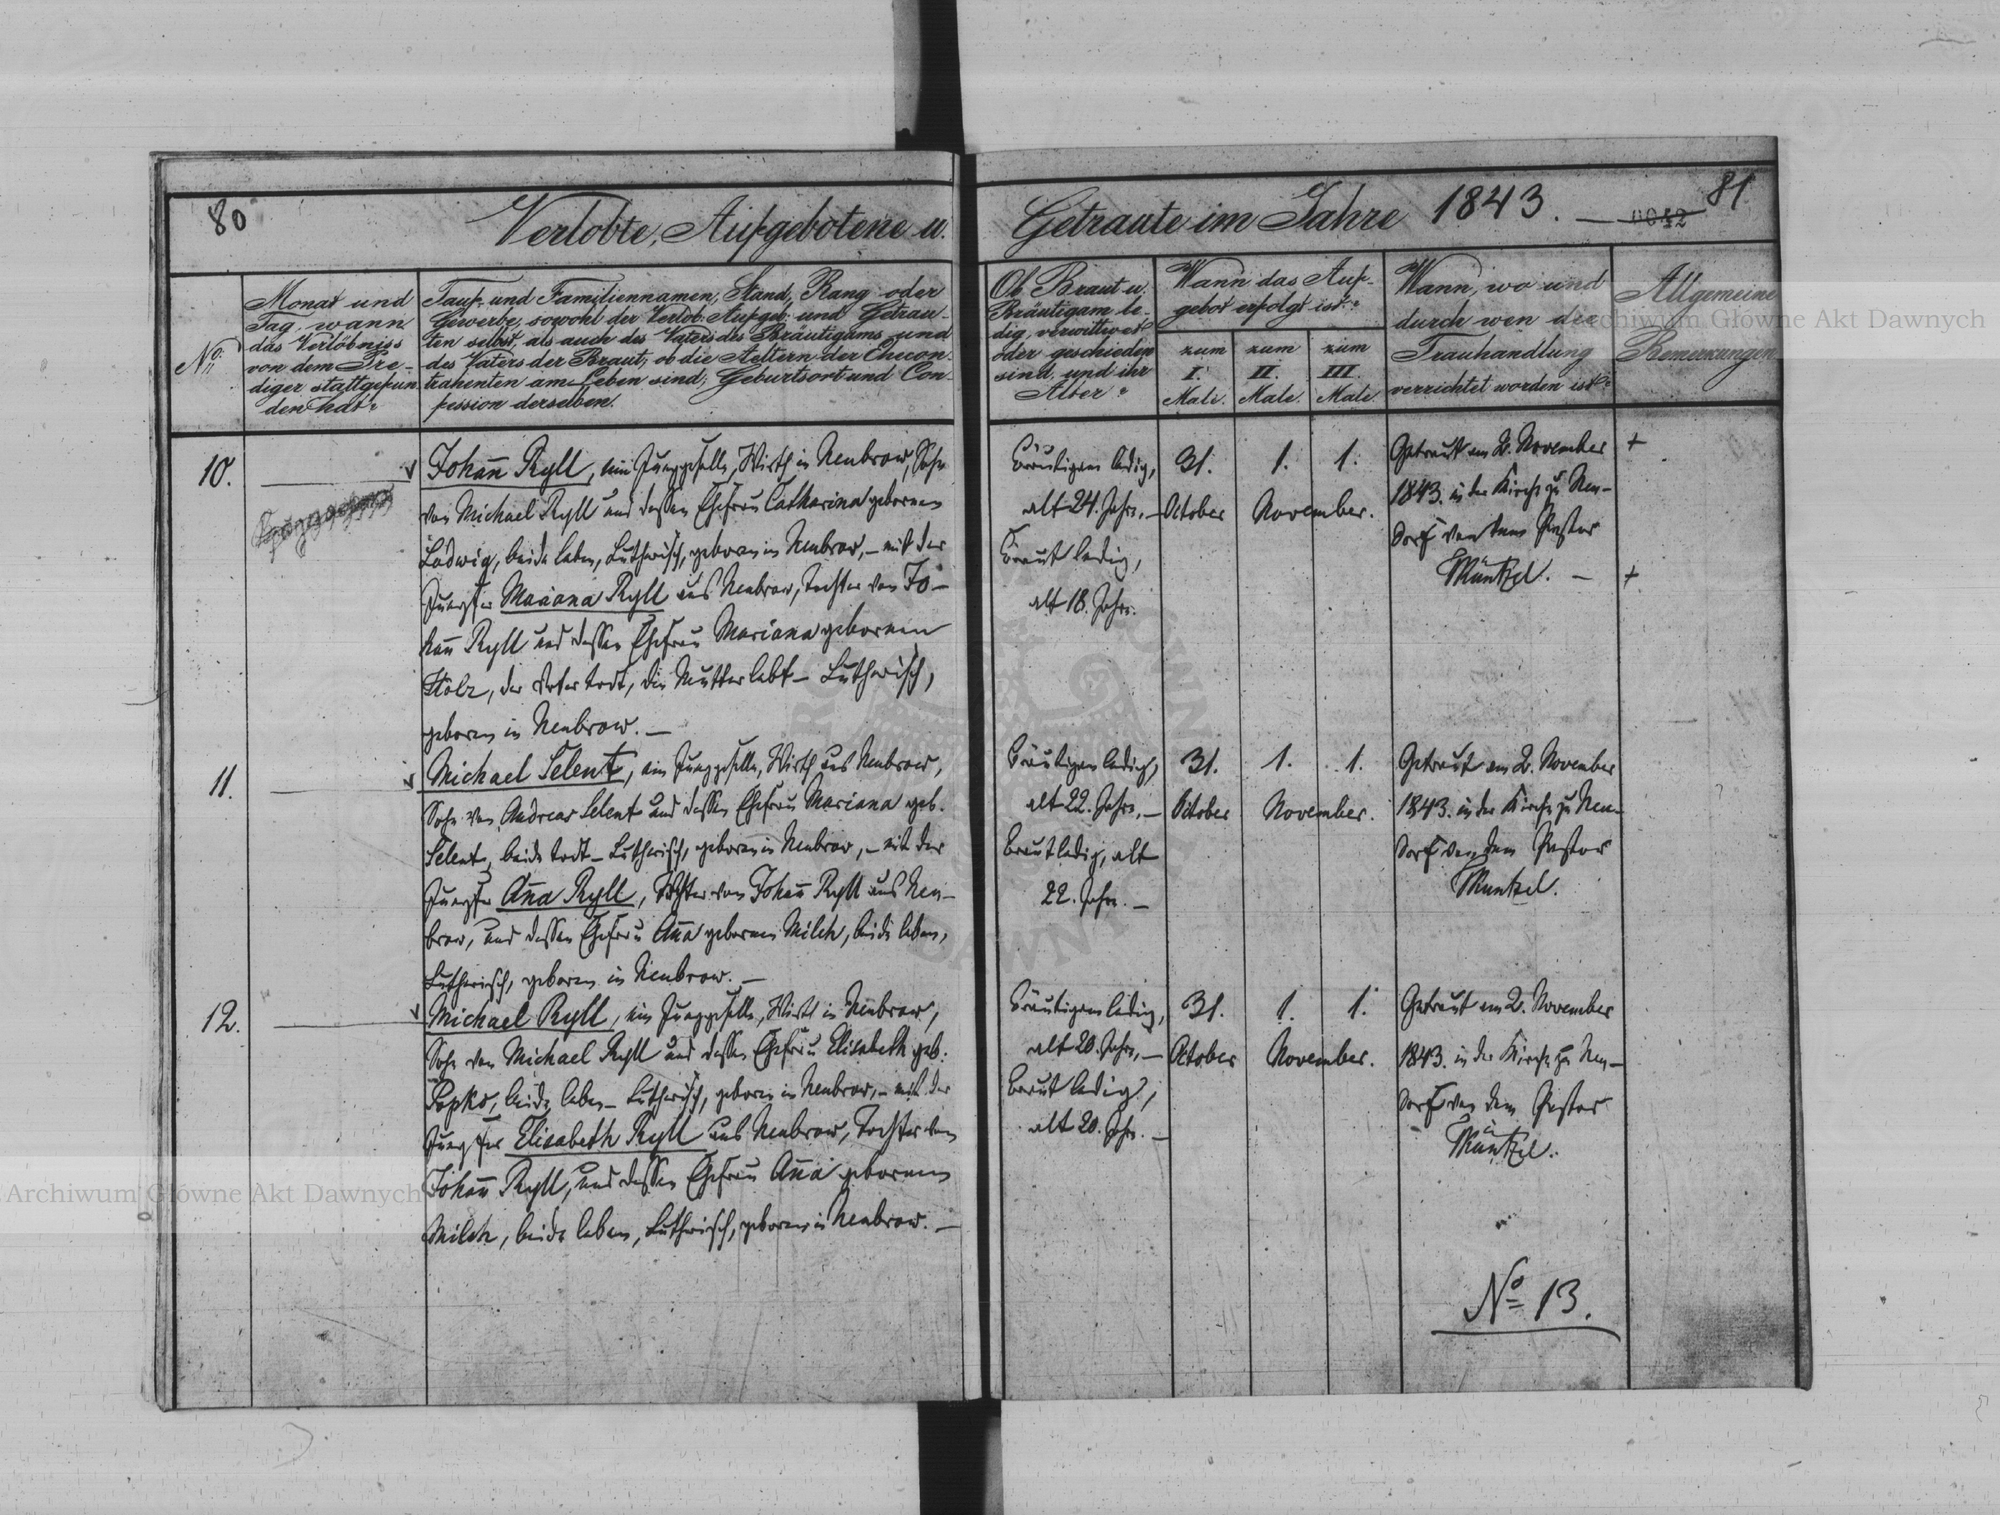 80
Verlobte, Aufgebotene u.
Getraute im Jahre 1843. —
0042
81
No:
Monat und
Tag, wann
das Verlöbniss
von dem Pre-
diger stattgefun
den hat?
Tauf- und Familiennamen, Stand, Rang oder
Gewerbe, sowohl der Verlob: Aufgeb: und Getrau-
ten selbst, als auch des Vaters des Bräutigams und
des Vaters der Braut, ob die Aeltern der Checon-
trahenten am Leben sind; Geburtsort und Con-
fession derselben.
Ob Braut u.
Bräutigam le-
dig, verwittwet
oder geschieden
sind, und ihr
Alter?
Wann das Auf-
gebot erfolgt ist?
zum
I.
Male.
zum
II.
Male.
zum
III.
Male.
Wann, wo und
durch wen die
Trauhandlung
verrichtet worden ist?
Allgemeine
Bemerkungen
10.
Johan̄ Ryll, ein Junggeselle, Wirth in Neubrow, Sohn
von Michael Ryll und dessen Ehefrau Catharina gebornen
Ludwig, beide leben, Lutherisch, geboren in Neubrow, – mit der
Jungfer Mariana Ryll aus Neubrow, Tochter von Jo-
han̄ Ryll und dessen Ehefrau Mariana gebornen
Stolz, der Vater todt, die Mutter lebt – Lutherisch,
geboren in Neubrow. —
Bräutigam ledig,
alt 24. Jahr, —
Braut ledig,
alt 18. Jahr.
31.
October
1. 1.
November.
Getraut am 2. November
1843. in der Kirche zu Neu-
dorf von dem Pastor
Müntzel. —
+
+
11.
Michael Selent, ein Junggeselle, Wirth aus Neubrow,
Sohn von Andreas Selent und dessen Ehefrau Mariana geb.
Selent, beide todt – Lutherisch, geboren in Neubrow, – mit der
Jungfer An̄a Ryll, Tochter von Johan̄ Ryll aus Neu-
brow, und dessen Ehefrau An̄a gebornen Milch, beide leben,
Lutherisch, geboren in Neubrow. —
Bräutigam ledig,
alt 22. Jahr, —
Braut ledig, alt
22. Jahr. —
31.
October
1. 1.
November.
Getraut am 2. November
1843. in der Kirche zu Neu-
dorf von dem Pastor
Müntzel.
12.
Michael Ryll, ein Junggeselle, Wirth in Neubrow,
Sohn von Michael Ryll und dessen Ehefrau Elisabeth geb.
Popko, beide leben – Lutherisch, geboren in Neubrow, – mit der
Jungfer Elisabeth Ryll aus Neubrow, Tochter von
Johan̄ Ryll, und dessen Ehefrau An̄a gebornen
Milch, beide leben, Lutherisch, geboren in Neubrow. —
Bräutigam ledig,
alt 20. Jahr, —
Braut ledig,
alt 20. Jahr. —
31.
October
1. 1.
November.
Getraut am 2. November
1843. in der Kirche zu Neu-
dorf von dem Pastor
Müntzel.
No 13.
Archiwum Główne Akt Dawnych
Archiwum Główne Akt Dawnych